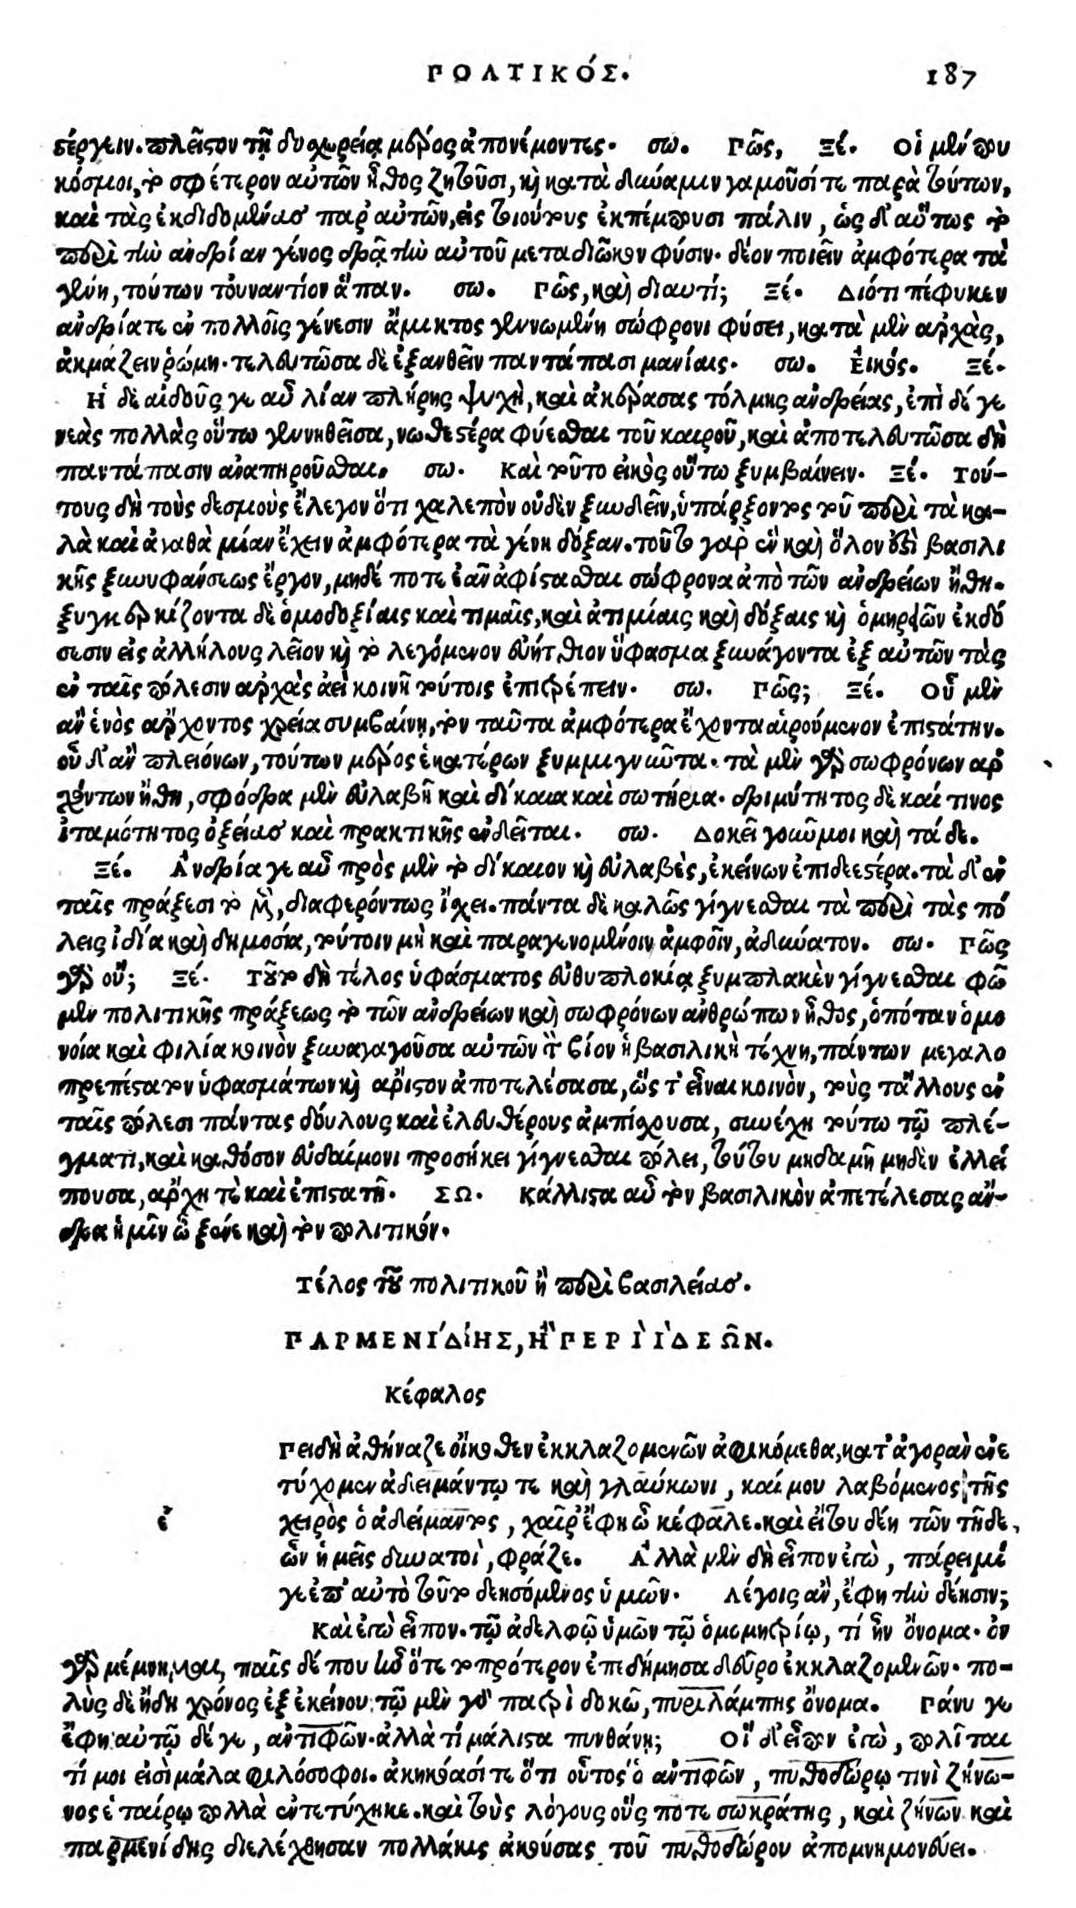 ΠΟΛΙΤΙΚΌΣ. 187
στέργειν. πλεῖστον τῇ δυσχερείᾳ μέρος ἀπονέμοντες· σω. Πῶς, Ξέ. Οἱ μέν που
κόσμιοι, τὸ σφέτερον αὐτῶν ἦθος ζητοῦσι, καὶ κατὰ δύναμιν γαμοῦσί τε παρὰ τούτων,
καὶ τὰς ἐκδιδομένας παρ' αὐτῶν, εἰς τοιούτους ἐκπέμπουσι πάλιν, ὡς δ' αὕτως τὸ
περὶ τὴν ἀνδρίαν γένος δρᾷ τὴν αὐτοῦ μεταδιῶκον φύσιν· δέον ποιεῖν ἀμφότερα τὰ
γένη, τούτων τουναντίον ἅπαν. σω. Πῶς, καὶ διατί; Ξέ. Διότι πέφυκεν
ἀνδρία τε ἐν πολλοῖς γένεσιν ἄμικτος γεννωμένη σώφρονι φύσει, κατὰ μὲν ἀρχὰς,
ἀκμάζειν ῥώμῃ· τελευτῶσα δὲ ἐξανθεῖν παντάπασι μανίαις· σω. Εἰκός. Ξέ.
Ἡ δὲ αἰδοῦς γε αὖ λίαν πλήρης ψυχὴ, καὶ ἀκέρασος τόλμης ἀνδρείας, ἐπὶ δέ γε
νεὰς πολλὰς οὕτω γεννηθεῖσα, νωθεστέρα φύεσθαι τοῦ καιροῦ, καὶ ἀποτελευτῶσα δὴ
παντάπασιν ἀναπηροῦσθαι. σω. Καὶ τοῦτο εἰκὸς οὕτω ξυμβαίνειν. Ξέ. Τού-
τους δὴ τοὺς δεσμοὺς ἔλεγον ὅτι χαλεπὸν οὐδὲν ξυνδεῖν, ὑπάρξοντος τοῦ περὶ τὰ κα-
λὰ καὶ ἀγαθὰ μίαν ἔχειν ἀμφότερα τὰ γένη δόξαν. τοῦτο γὰρ ἓν καὶ ὅλον ἐστὶ βασιλι
κῆς ξυνυφάνσεως ἔργον, μηδέ ποτε ἐᾶν ἀφίστασθαι σώφρονα ἀπὸ τῶν ἀνδρείων ἤθη.
ξυγκερκίζοντα δὲ ὁμοδοξίαις καὶ τιμαῖς, καὶ ἀτιμίαις καὶ δόξαις καὶ ὁμηρειῶν ἐκδό
σεσιν εἰς ἀλλήλους λεῖον καὶ τὸ λεγόμενον εὐήτριον ὕφασμα ξυνάγοντα ἐξ αὐτῶν τὰς
ἐν ταῖς πόλεσιν ἀρχὰς ἀεὶ κοινῇ τούτοις ἐπιτρέπειν. σω. Πῶς; Ξέ. Οὗ μὲν
ἂν ἑνὸς ἄρχοντος χρεία συμβαίνῃ, τὸν ταῦτα ἀμφότερα ἔχοντα αἱρούμενον ἐπιστάτην.
οὗ δ' ἂν πλειόνων, τούτων μέρος ἑκατέρων ξυμμιγνῦντα· τὰ μὲν γὰρ σωφρόνων ἀρ
χόντων ἤθη, σφόδρα μὲν εὐλαβῆ καὶ δίκαια καὶ σωτήρια. δριμύτητος δὲ καί τινος
ἰταμότητος ὀξείας καὶ πρακτικῆς ἐνδεῖται. σω. Δοκεῖ γοῦν μοι καὶ τάδε.
Ξέ. Ἀνδρία γε αὖ πρὸς μὲν τὸ δίκαιον καὶ εὐλαβὲς, ἐκείνων ἐπιδεεστέρα. τὰ δ' ἐν
ταῖς πράξεσι τὸ μὲν, διαφερόντως ἴσχει. πάντα δὲ καλῶς γίγνεσθαι τὰ περὶ τὰς πό
λεις ἰδίᾳ καὶ δημοσίᾳ, τούτοιν μὴ καὶ παραγενομένοιν ἀμφοῖν, ἀδύνατον. σω. Πῶς
γὰρ οὔ; Ξέ. Τοῦτο δὴ τέλος ὑφάσματος εὐθυπλοκίᾳ ξυμπλακὲν γίγνεσθαι φῶ
μεν πολιτικῆς πράξεως τὸ τῶν ἀνδρείων καὶ σωφρόνων ἀνθρώπων ἦθος, ὁπόταν ὁμο
νοίᾳ καὶ φιλίᾳ κοινὸν ξυναγαγοῦσα αὐτῶν τὸν βίον ἡ βασιλικὴ τέχνη, πάντων μεγαλο
πρεπέστατον ὑφασμάτων καὶ ἄριστον ἀποτελέσασα, ὥς τ' εἶναι κοινὸν, τοὺς τ' ἄλλους ἐν
ταῖς πόλεσι πάντας δούλους καὶ ἐλευθέρους ἀμπίσχουσα, συνέχῃ τούτῳ τῷ πλέ-
γματι, καὶ καθόσον εὐδαίμονι προσήκει γίγνεσθαι πόλει, τούτου μηδαμῇ μηδὲν ἐλλεί
πουσα, ἄρχῃ τε καὶ ἐπιστατῇ. ΣΩ. Κάλλιστα αὖ τὸν βασιλικὸν ἀπετέλεσας ἄν-
δρα ἡμῖν ὦ ξένε καὶ τὸν πολιτικόν.
Τέλος τοῦ πολιτικοῦ ἢ περὶ βασιλείας.
ΠΑΡΜΕΝΊΔΗΣ, Ἢ ΠΕΡῚ ἸΔΕΩ͂Ν.
Κέφαλος
Πειδὴ ἀθήναζε οἴκοθεν ἐκκλαζομενῶν ἀφικόμεθα, κατ' ἀγορὰν ἐνε
τύχομεν ἀδειμάντῳ τε καὶ γλαύκωνι, καί μου λαβόμενος τῆς
ἐ χειρὸς ὁ ἀδείμαντος, χαῖρ' ἔφη ὦ κέφαλε. καὶ εἴ του δέῃ τῶν τῇδε,
ὧν ἡμεῖς δυνατοὶ, φράζε. Ἀλλὰ μὲν δὴ εἶπον ἐγὼ, πάρειμί
γε ἐπ' αὐτὸ τοῦτο δεησόμενος ὑμῶν. Λέγοις ἂν, ἔφη τὴν δέησιν;
Καὶ ἐγὼ εἶπον. τῷ ἀδελφῷ ὑμῶν τῷ ὁμομητρίῳ, τί ἦν ὄνομα· οὐ
γὰρ μέμνημαι, παῖς δέ που ἦν ὅτε τὸ πρότερον ἐπιδήμησα δεῦρο ἐκκλαζομενῶν. πο-
λὺς δὲ ἤδη χρόνος ἐξ ἐκείνου. τῷ μὲν γὰρ πατρὶ δοκῶ, πυριλάμπης ὄνομα. Πάνυ γε
ἔφη· αὐτῷ δέ γε, ἀντιφῶν. ἀλλὰ τί μάλιστα πυνθάνῃ; Οἵ δ' εἶπον ἐγὼ, πολῖται
τί μοι εἰσὶ μάλα φιλόσοφοι. ἀκηκόασί τε ὅτι οὗτος ὁ ἀντιφῶν, πυθοδώρῳ τινὶ ζήνω-
νος ἑταίρῳ πολλὰ ἐντετύχηκε. καὶ τοὺς λόγους οὕς ποτε σωκράτης, καὶ ζήνων καὶ
παρμενίδης διελέχθησαν πολλάκις ἀκούσας τοῦ πυθοδώρου ἀπομνημονεύει.